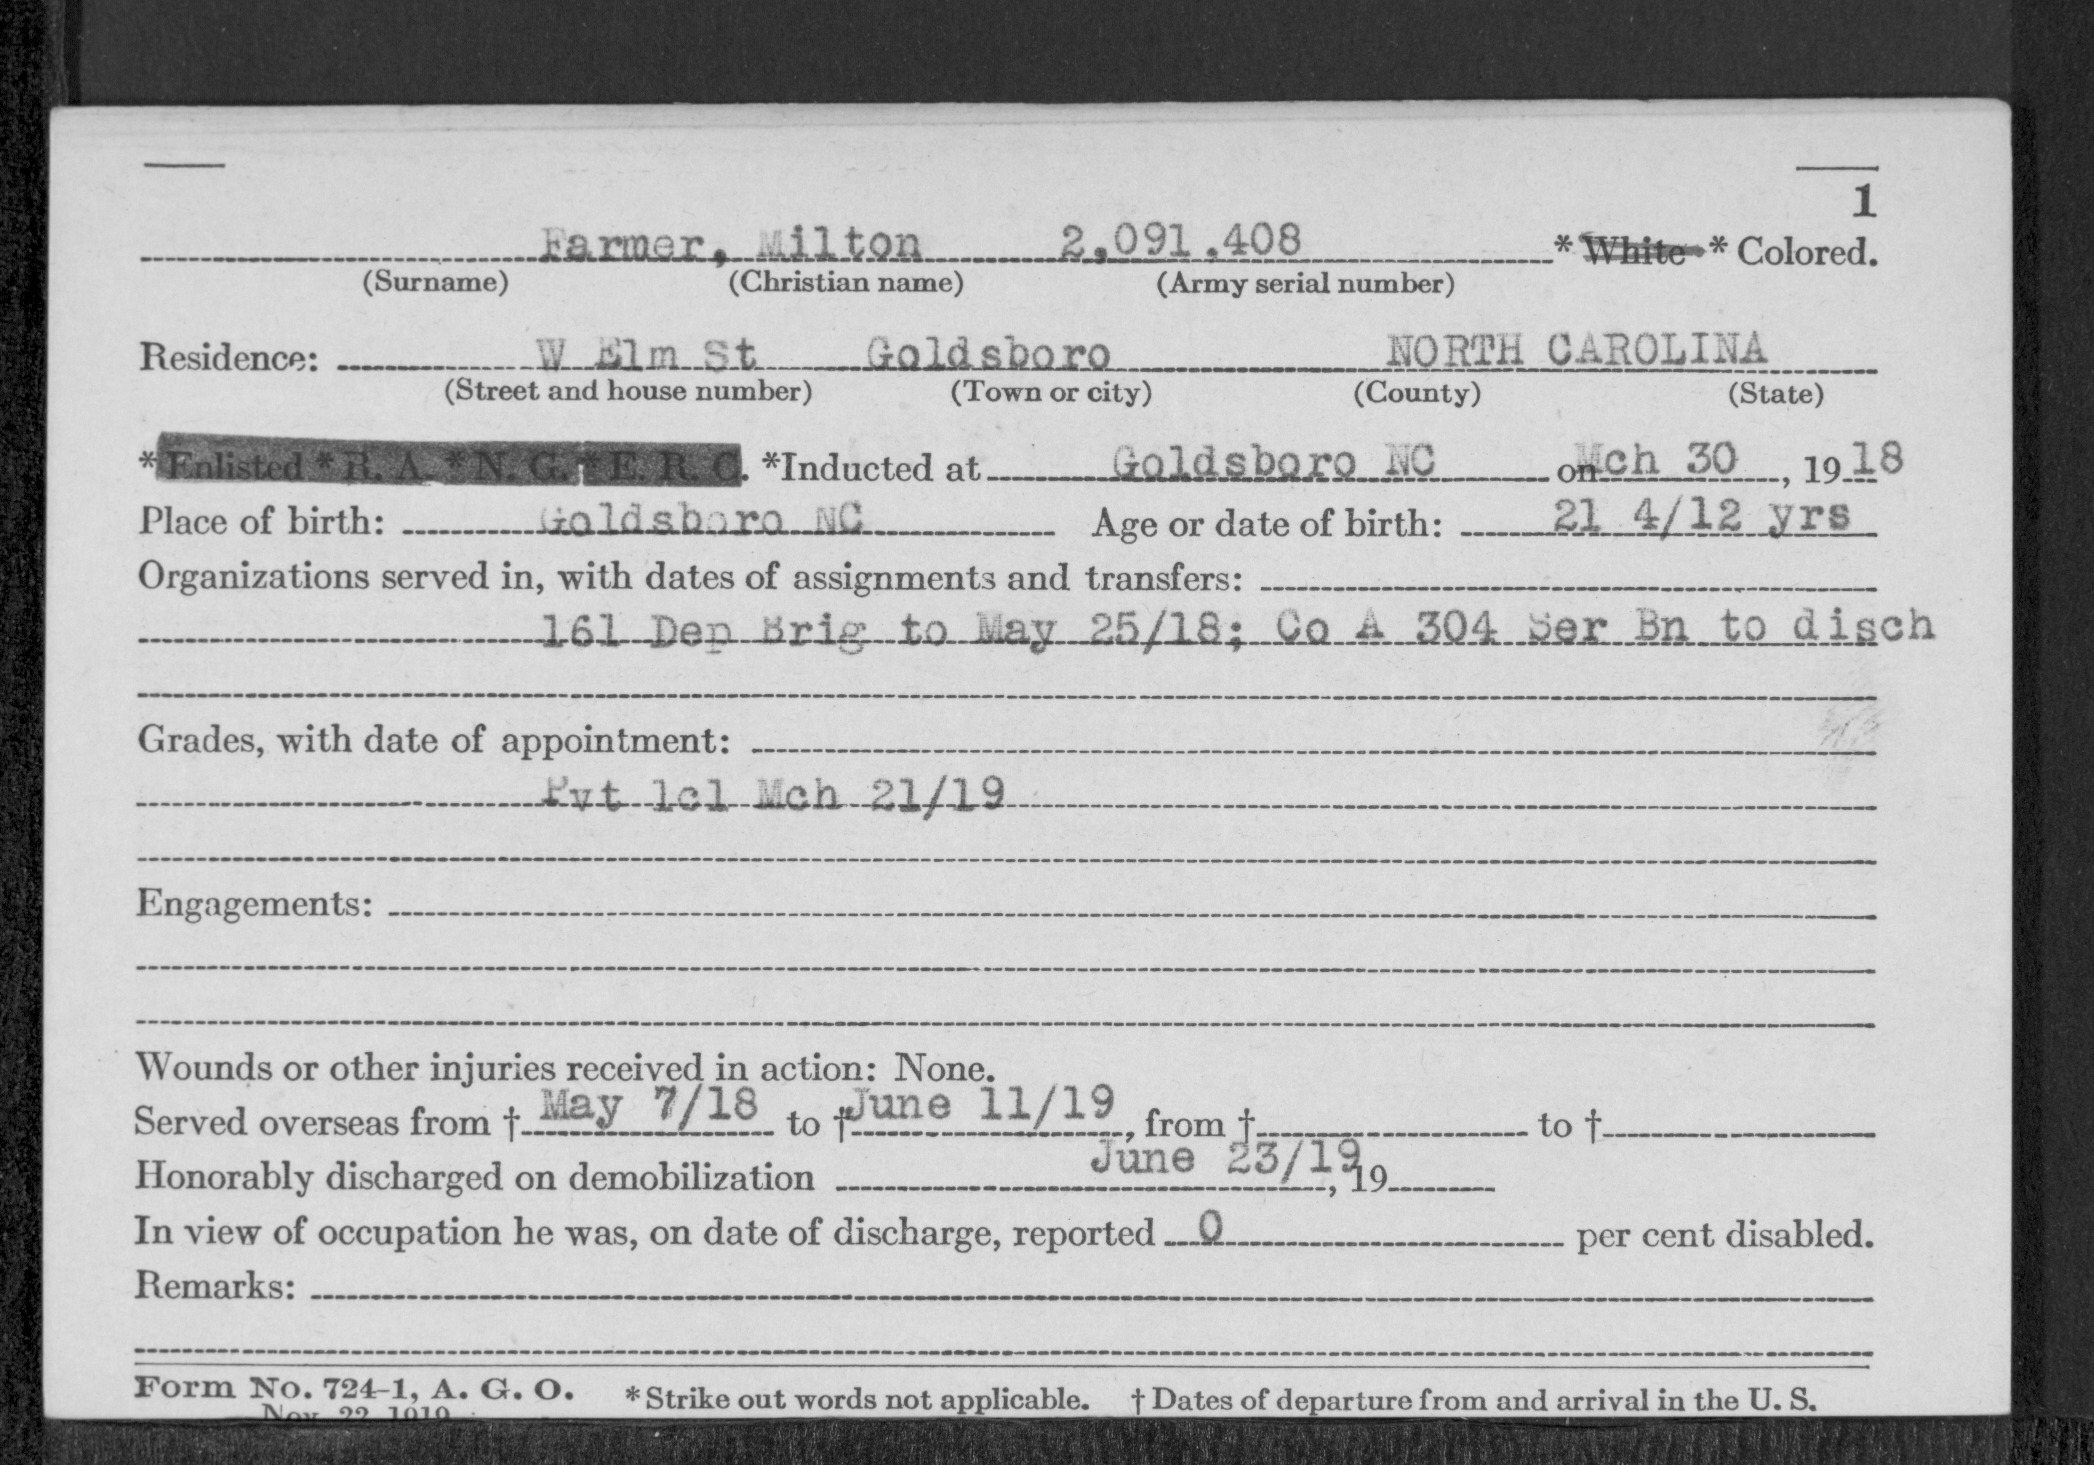 1
Farmer, Milton 2,091.408 * White * Colored.
(Surname) (Christian name) (Army serial number)
Residence: W Elm St Goldsboro NORTH CAROLINA
(Street and house number) (Town or city) (County) (State)
*Enlisted *R. A. *N. G. *E. R. C. *Inducted at Goldsboro NC on Mch 30, 1918
Place of birth: Goldsboro NC Age or date of birth: 21 4/12 yrs
Organizations served in, with dates of assignments and transfers:
161 Dep Brig to May 25/18; Co A 304 Ser Bn to disch
Grades, with date of appointment:
Pvt 1cl Mch 21/19
Engagements:
Wounds or other injuries received in action: None.
Served overseas from † May 7/18 to † June 11/19, from † to †
Honorably discharged on demobilization June 23/19, 19
In view of occupation he was, on date of discharge, reported 0 per cent disabled.
Remarks:
Form No. 724-1, A. G. O. *Strike out words not applicable. † Dates of departure from and arrival in the U. S.
Nov. 22, 1919.